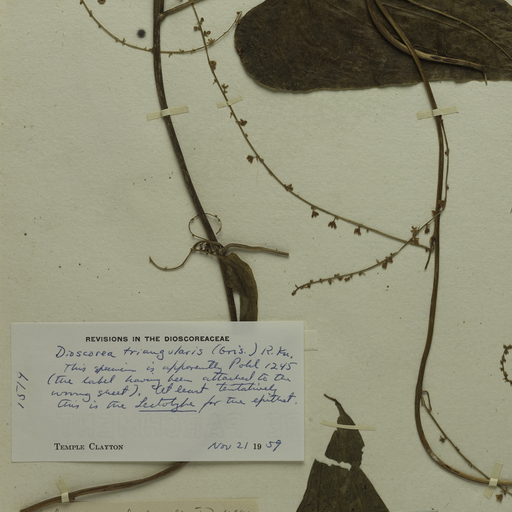 REVISIONS IN THE DIOSCOREACEAE
Dioscorea triangularis (Gris.) R. Kn.
This specimen is apparently Pohl 1245
(the label having been attached to the
wrong sheet). At least tentatively
this is the Lectotype for the epithet.
TEMPLE CLAYTON Nov 21 1959
1579